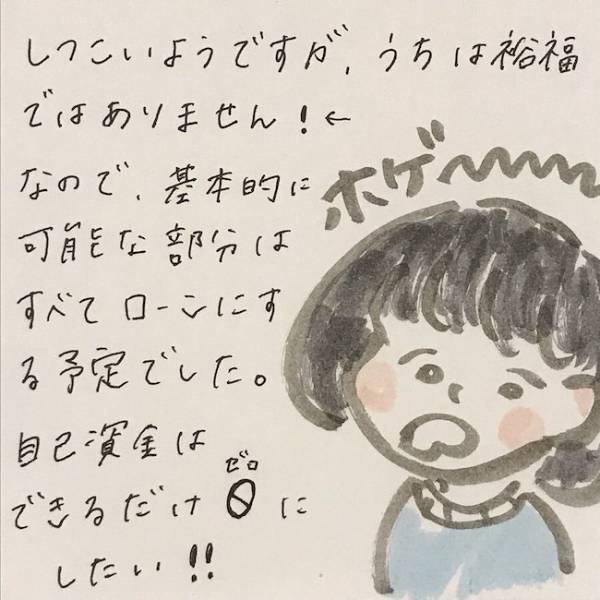 しつこいようですが、うちは裕福
ではありません!←
なので、基本的に
ホゲ〜〜〜
可能な部分は
すべてローンにす
る予定でした。
自己資金は
ゼロ
できるだけ0に
したい!!